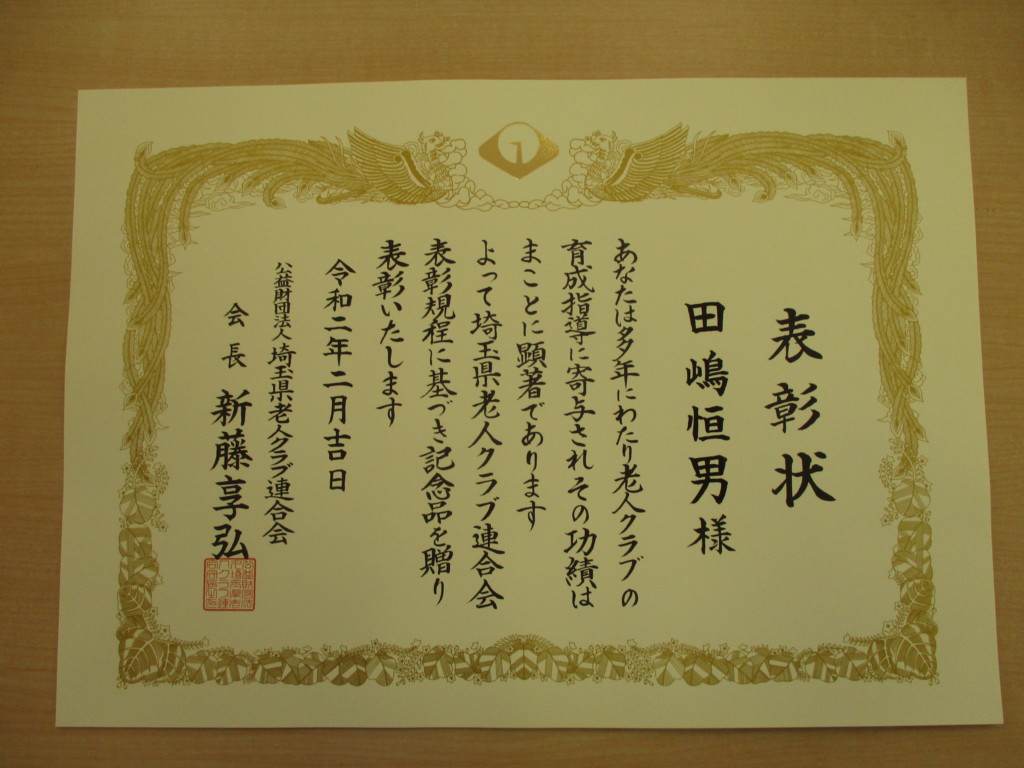 表彰状
田嶋恒男様
あなたは多年にわたり老人クラブの
育成指導に寄与されその功績は
まことに顕著であります
よって埼玉県老人クラブ連合会
表彰規程に基づき記念品を贈り
表彰いたします
令和二年二月吉日
公益財団法人 埼玉県老人クラブ連合会
会長 新藤享弘